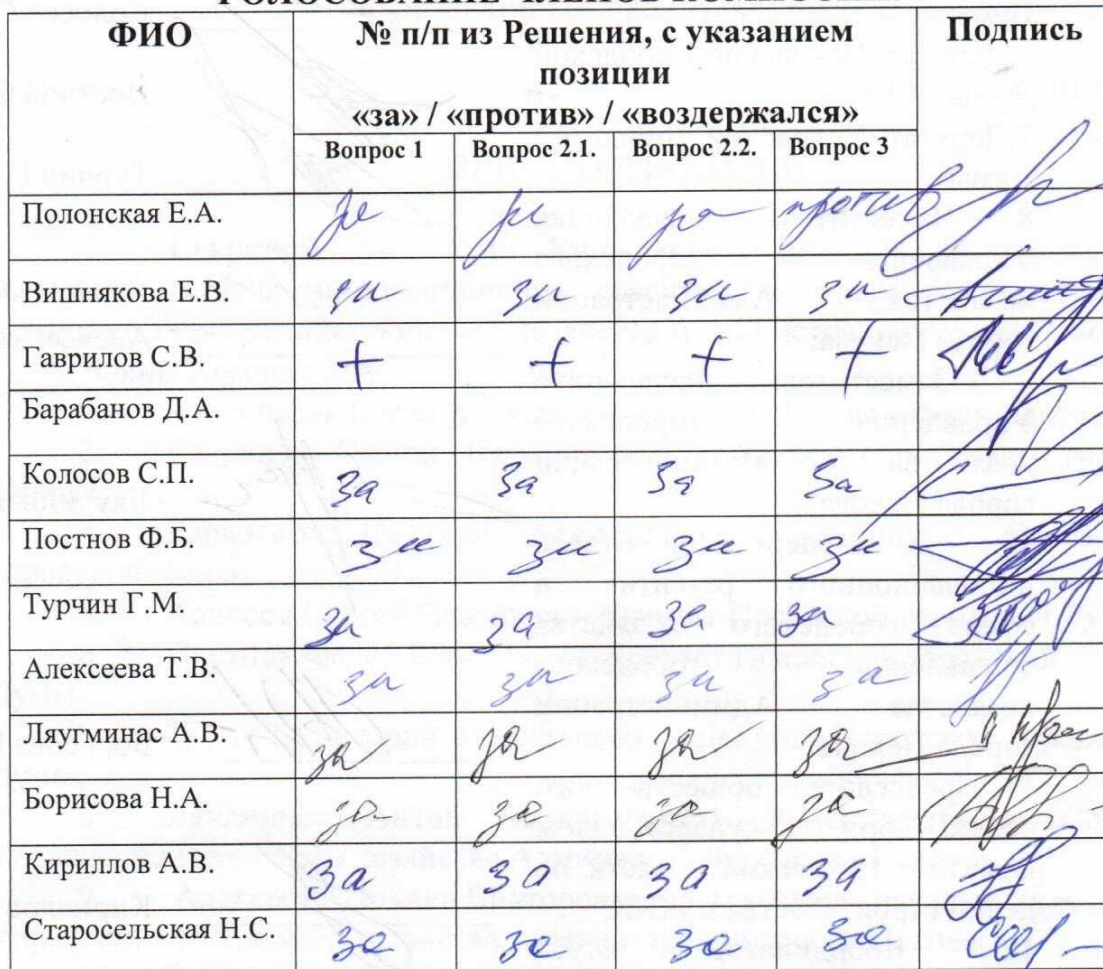 ФИО № п/п из Решения, с указанием Подпись
позиции
«за» / «против» / «воздержался»
Вопрос 1 Вопрос 2.1. Вопрос 2.2. Вопрос 3
Полонская Е.А. за за за против
Вишнякова Е.В. за за за за
Гаврилов С.В. + + + +
Барабанов Д.А.
Колосов С.П. за за за за
Постнов Ф.Б. за за за за
Турчин Г.М. за за за за
Алексеева Т.В. за за за за
Ляугминас А.В. за за за за
Борисова Н.А. за за за за
Кириллов А.В. за за за за
Старосельская Н.С. за за за за